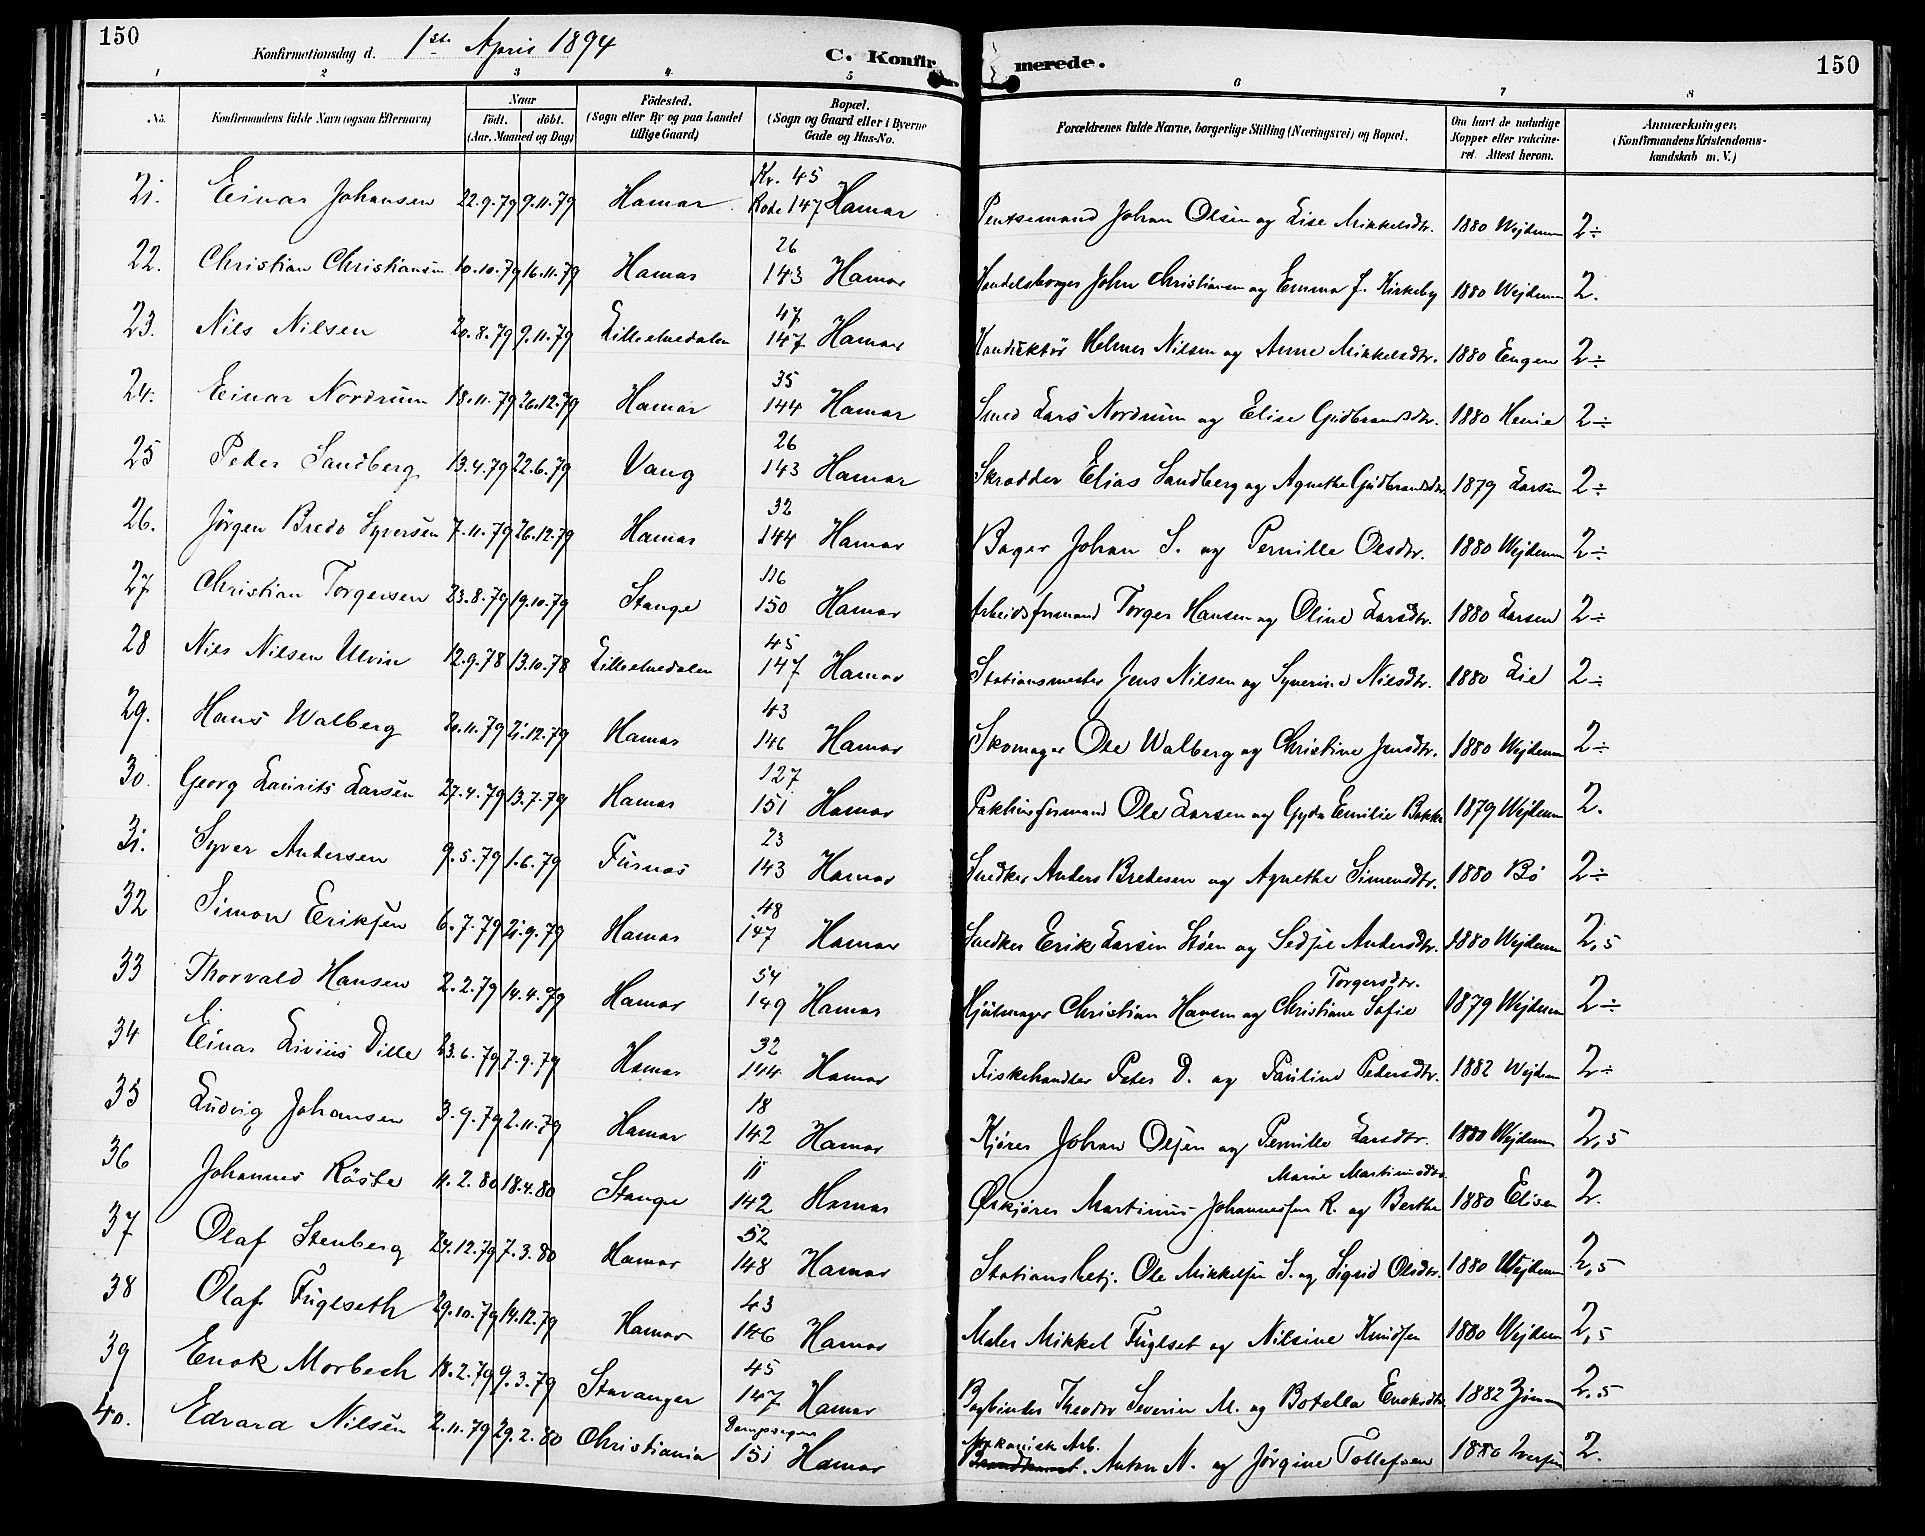 150
Konfirmationsdag d. 1ste April 1894
C. Konfirmerede.
150
1 2 3 4 5 6 7 8
No.
Konfirmandens fulde Navn (ogsaa Efternavn)
Naar
födt. döbt.
(Aar, Maaned og Dag)
Födested.
(Sogn eller By og paa Landet
tillige Gaard)
Bopæl.
(Sogn og Gaard eller i Byerne
Gade og Hus-No.
Forældrenes fulde Navne, borgerlige Stilling (Næringsvei) og Bopæl.
Om havt de naturlige
Kopper eller vakcine-
ret. Attest herom.
Anmærkninger.
(Konfirmandens Kristendoms-
kundskab m. V.)
Kv. 45
21. Einar Johansen 22.9.79 9.11.79 Hamar Rode 147 Hamar Johan Olsen og Lise Mikkelsdtr. 1880 Wejdemn 2÷
26
22. Christian Christiansen 10.10.79 16.11.79 Hamar 143 Hamar Handelsborger John Christiansen og Emma J. Kirkeby 1880 Wejdemn 2.
47
23. Nils Nilsen 20.8.79 9.11.79 Lilleelvedalen 147 Hamar Konduktör Helmer Nilsen og Anne Mikkelsdtr. 1880 Engen 2÷
35
24. Einar Nordrum 18.11.79 26.12.79 Hamar 144 Hamar Smed Lars Nordrum og Elise Gudbrandsdtr. 1880 Henie 2÷
26
25 Peder Sandberg 13.4.79 22.6.79 Vang 143 Hamar Skrædder Elias Sandberg og Agnethe Gudbrandsdtr. 1879 Larsen 2÷
32
26. Jörgen Bredo Syversen 7.11.79 26.12.79 Hamar 144 Hamar Bager Johan S. og Pernille Olsdtr. 1880 Wejdemn 2÷
116
27 Christian Torgersen 23.8.79 19.10.79 Stange 150 Hamar Arbeidsformand Torger Hansen og Oline Larsdtr. 1880 Larsen 2÷
45
28 Nils Nilsen Ulvin 12.9.78 13.10.78 Lilleelvedalen 147 Hamar Stationsmester Jens Nilsen og Syverine Nilsdtr. 1880 Lie 2÷
43
29. Hans Walberg 20.11.79 21.12.79 Hamar 146 Hamar Skomager Ole Walberg og Christine Jensdtr. 1880 Wejdemn 2÷
127
30. Georg Laurits Larsen 27.4.79 13.7.79 Hamar 151 Hamar Pakhusformand Ole Larsen og Gyda Emilie Bakke 1879 Wejdemn 2.
23
31. Syver Andersen 9.5.79 1.6.79 Furnes 143 Hamar Snedker Anders Bredesen og Agnethe Simensdtr. 1880 Bö 2÷
48
32 Simon Eriksen 6.7.79 21.9.79 Hamar 147 Hamar Snedker Erik Larsen Stöen og Sedsje Andersdtr. 1880 Wejdemn 2,5
54 Torgersdtr.
33 Thorvald Hansen 2.2.79 14.4.79 Hamar 149 Hamar Hjulmager Christian Hansen og Christiane Sofie 1879 Wejdemn 2÷
32
34 Einar Livius Dille 23.6.79 7.9.79 Hamar 144 Hamar Fiskehandler Peter D. og Pauline Pedersdtr. 1882 Wejdem 2÷
18
35 Ludvig Johansen 3.9.79 2.11.79 Hamar 142 Hamar Kjører Johan Olsen og Pernille Larsdtr. 1880 Wejdemn 2,5
11 Marie Martinusdtr.
36 Johannes Röste 11.2.80 18.4.80 Stange 142 Hamar Ølkjører Martinus Johannessen R. og Berthe 1880 Elisen 2.
52
37 Olaf Stenberg 24.12.79 7.3.80 Hamar 148 Hamar Stationsbetj. Ole Mikkelsen S. og Sigrid Olsdtr. 1880 Wejdemn 2,5
43
38 Olaf Fuglseth 29.10.79 14.12.79 Hamar 146 Hamar Maler Mikkel Fuglset og Nilsine Knudsen 1880 Wejdem 2,5
45
39 Enok Morbech 18.2.79 9.3.79 Stavanger 147 Hamar Bogbinder Theodor Severin M. og Botella Enoksdtr. 1882 2.5
Dampsagen Mekanisk Arb.
40. Edvard Nilsen 2.11.79 29.2.80 Christiania 151 Hamar Anton N. og Jørgine Tollefsen 1880 Iversen 2.